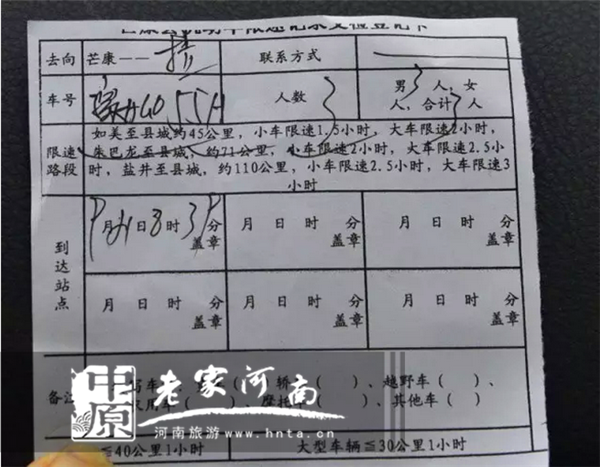 去向 芒康—— 联系方式
车号 人数 男3人，女
人，合计3人
限速路段 如美至县城约45公里，小车限速1.5小时，大车限速2小时，
朱巴龙至县城，约71公里，小车限速2小时，大车限速2.5小
时，盐井至县城，约110公里，小车限速2.5小时，大车限速3
小时
到达站点 月 日 时 分 月 日 时 分 月 日 时 分
盖章 盖章 盖章
月 日 时 分 月 日 时 分 月 日 时 分
盖章 盖章 盖章
轿 （ ）、越野车（ ）、
（ ） 摩托 （ ）、其他车（ ）
中原 老家河南
河南旅游 www.hnta.cn
≦40公里1小时 大型车辆≦30公里1小时